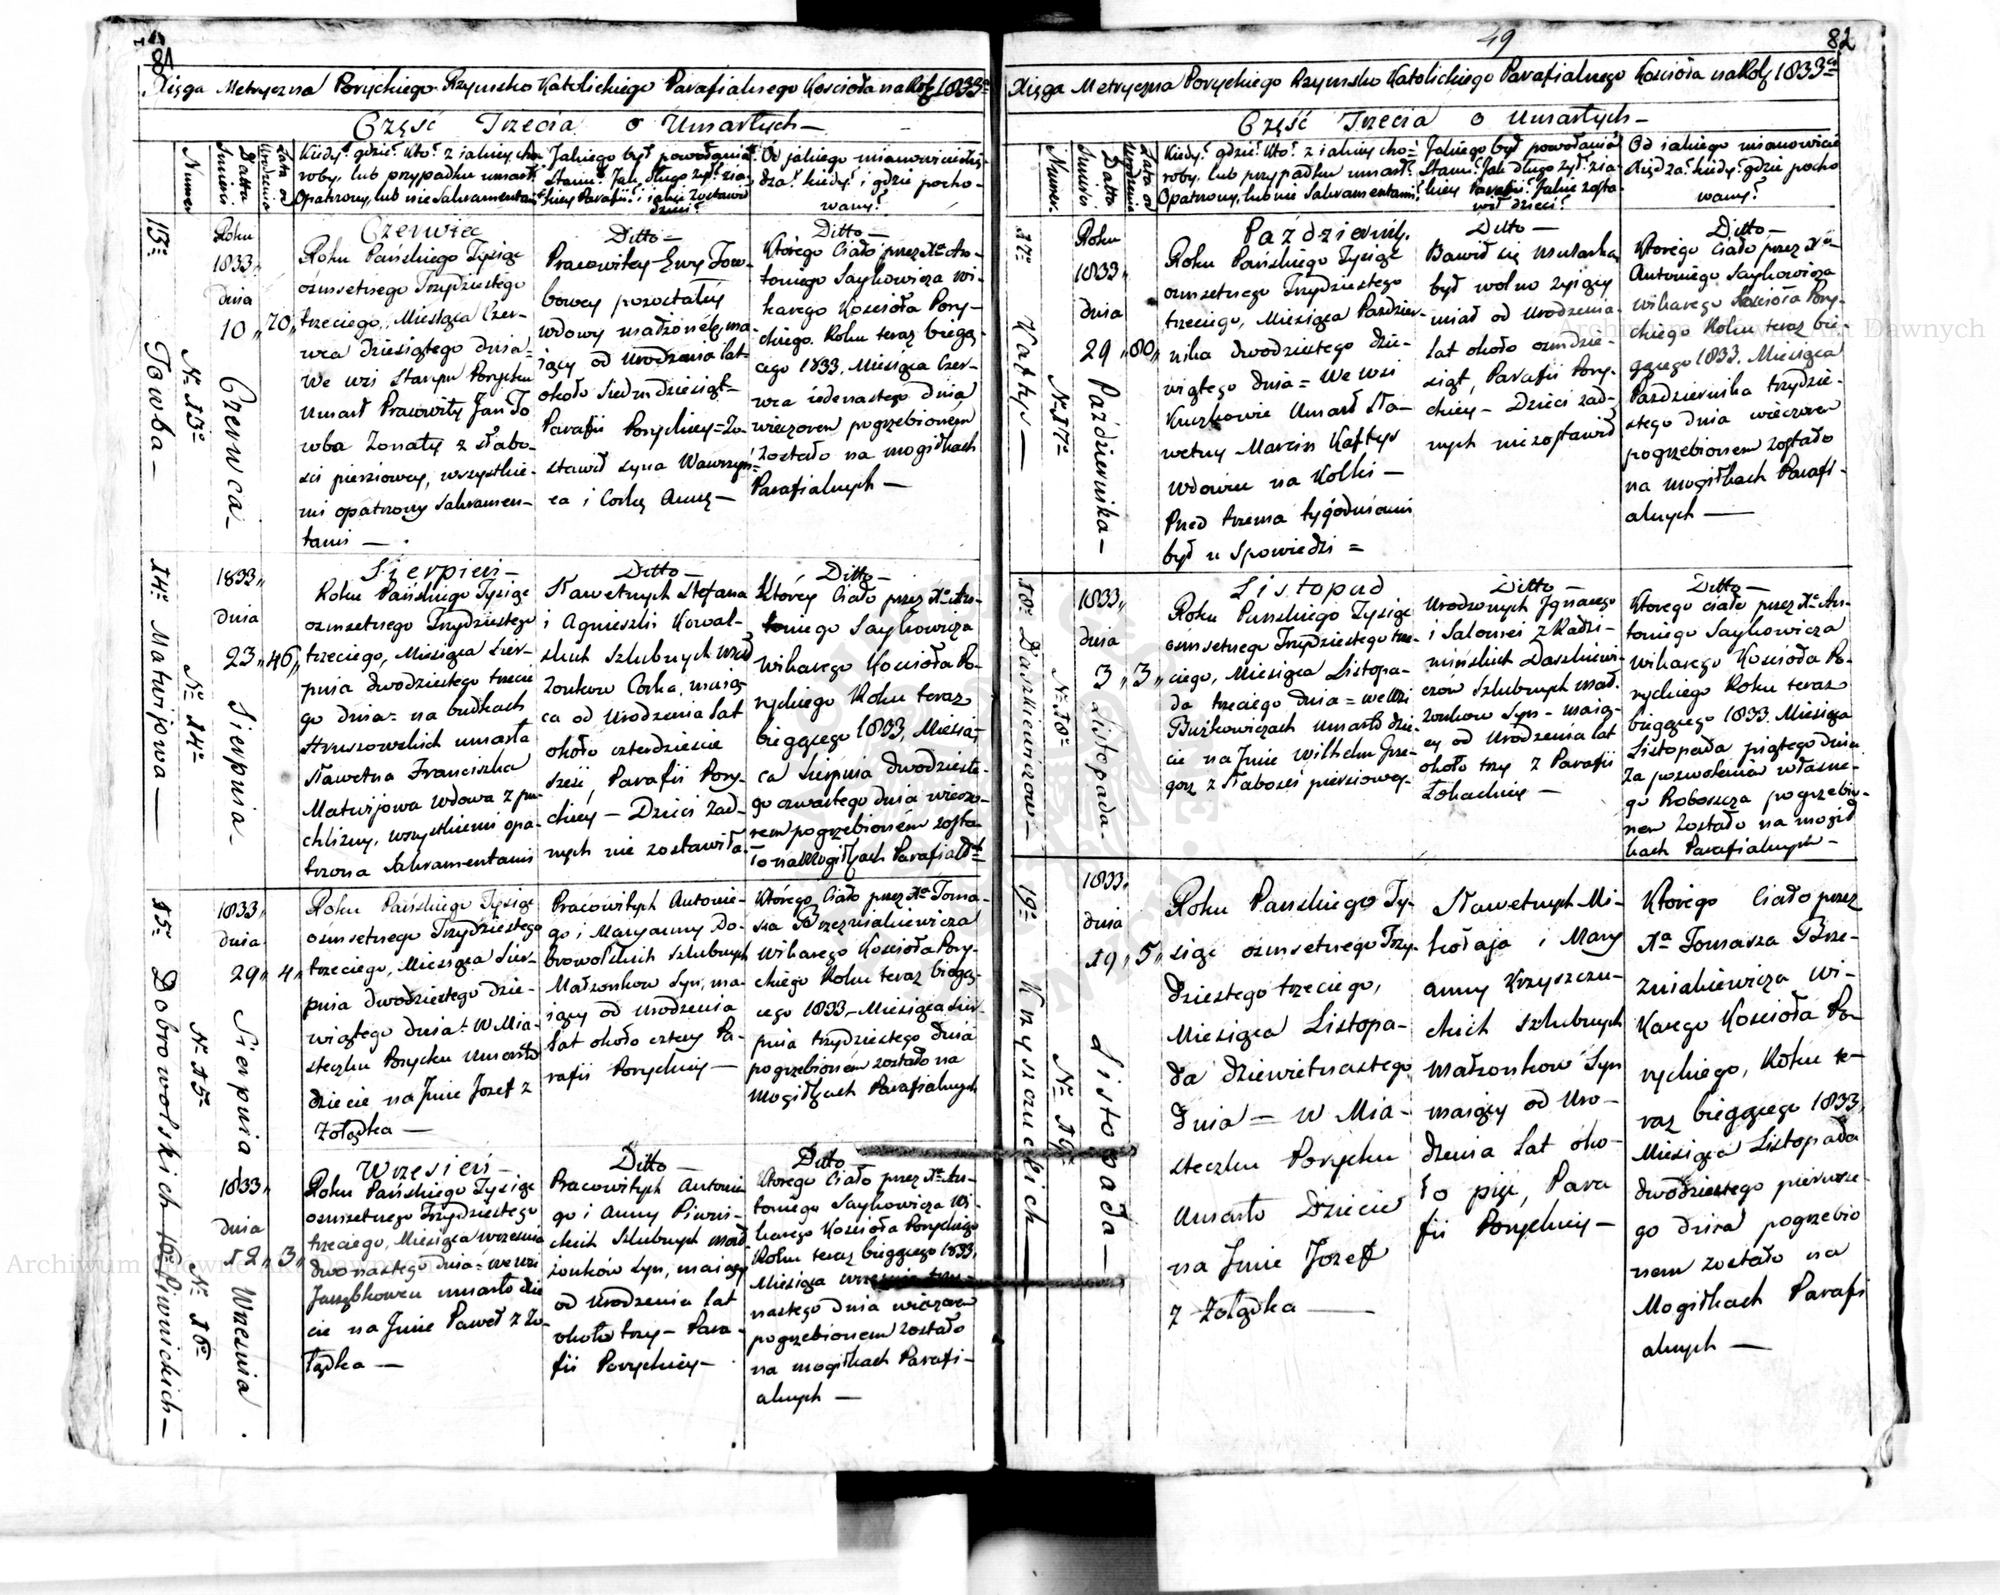 81
Xięga Metryczna Poryckiego Rzymsko Katolickiego Parafialnego Kościoła na Rok 1833ci
Część Trzecia o Umarłych —
Numer
Datta Śmierci
Lata od Urodzenia
Kiedy? gdzie? Kto? z jakiey cho
roby, lub przypadku umarł
Opatrzony, lub nie Sakramentami
Jakiego był powołania
Stanu? Jak długo żył? z ia-
kiey Parafii? i jakie zostawił
dzieci?
Od jakiego mianowicie Xię-
dza? kiedy? i gdzie pocho-
wany?
13o
Towba —
No 13o
Roku
1833,,
dnia
10
Czerwca —
,,70,,
Czerwiec
Roku Pańskiego Tysiąc
ośmsetnego Trzydziestego
trzeciego, Miesiąca Czer-
wca dziesiątego dnia =
We wsi Starym Porycku
Umarł Pracowity Jan To
wba Żonaty z słabo-
ści piersiowey, wszystkie-
mi opatrzony Sakramen-
tami — .
Ditto —
Pracowitey Ewy Tow-
bowey pozostałey
wdowy małżonek, ma-
iący od Urodzenia lat
około Siedmdziesiąt
Parafii Poryckiey = Zo-
stawił syna Wawrzyń-
ca i Corkę Annę —
Ditto —
Którego Ciało przez Xa An-
toniego Saykowicza Wi-
karego Kościoła Pory-
ckiego. Roku teraz biegą-
cego 1833. Miesiąca Czer-
wca iedenastego dnia
wieczorem pogrzebionem
zostało na mogiłkach
Parafialnych —
14o
Matwijowa —
No 14o
1833,,
dnia
23
Sierpnia —
,,46,,
Sierpień —
Roku Pańskiego Tysiąc
ośmsetnego Trzydziestego
trzeciego, Miesiąca Sier-
pnia dwodziestego trzecie
go dnia = na budkach
Struszowskich umarła
Sławetna Franciszka
Matwijowa Wdowa z pu
chlizny, wszystkiemi opa-
trzona Sakramentami
Ditto —
Sławetnych Stefana
i Agnieszki Kowal-
skich Szlubnych mał
żonkow Corka, maią-
ca od Urodzenia lat
około czterdzieście
sześć, Parafii Pory-
ckiey — Dzieci żad-
nych nie zostawiła
Ditto —
Którey Ciało przez Xa An-
toniego Saykowicza
Wikarego Kościoła Po-
ryckiego Roku teraz
biegącego 1833, Miesią-
ca Sierpnia dwodzieste-
go czwartego dnia wieczo-
rem pogrzebionem zosta
ło na Mogiłkach Parafialch
15o
Dobrowolskich —
No 15o
1833,,
dnia
29
Sierpnia
,,4,,
Roku Pańskiego Tysiąc
ośmsetnego Trzydziestego
trzeciego, Miesiąca Sier-
pnia dwodziestego dzie-
wiątego dnia = W Mia-
steczku Porycku Umarło
dziecie na Jmie Jozef z
Żołądka —
Pracowitych Antonie-
go i Maryanny Do-
browolskich Szlubnych
Małżonkow Syn, ma-
iący od Urodzenia
lat około cztery Pa-
rafii Poryckiey —
Którego Ciało przez Xa Toma-
sza Brzezniakiewicza
Wikarego Kościoła Pory-
ckiego Roku teraz biegą-
cego 1833, Miesiąca Sier-
pnia trzydziestego dnia
pogrzebionem zostało na
Mogiłkach Parafialnych
16o Piwnickich —
No 16o
1833,,
dnia
12
Września
,,3,,
Wrzesień —
Roku Pańskiego Tysiąc
ośmsetnego Trzydziestego
trzeciego, Miesiąca września
dwonastego dnia = we wsi
umarło dzie
cie na Jmie Paweł z Żo-
łądka —
Ditto —
Pracowitych Antonie
go i Anny Piwni-
ckich Szlubnych mał
żonków Syn, maiący
od Urodzenia lat
około trzy — Para-
fii Poryckiey —
Ditto —
Którego Ciało przez Xa An-
toniego Saykowicza Wi-
karego Kościoła Poryckiego
Roku teraz biegącego 1833,
Miesiąca września trzy-
nastego dnia wieczorem
pogrzebionem zostało
na mogiłkach Parafi-
alnych —
49
82
Xięga Metryczna Poryckiego Rzymsko Katolickiego Parafialnego Kościoła na Rok 1833ci
Część Trzecia o Umarłych —
Numer
Datta Śmierci
Lata od Urodzenia
Kiedy? gdzie? Kto? z iakiey cho-
roby, lub przypadku umarł?
Opatrzony, lub nie Sakramentami?
Jakiego był powołania
Stanu? Jak długo żył? z ia-
kiey Parafii? Jakie zosta-
wił dzieci?
Od iakiego mianowicie
Xiędza? kiedy? gdzie pocho
wany?
17o
Kaftys —
No 17o
Roku
1833,,
dnia
29
Października —
,,80,,
Październik.
Roku Pańskiego Tysiąc
ośmsetnego Trzydziestego
trzeciego, Miesiąca Paździer-
nika dwodziestego dzie-
wiątego dnia = We wsi
Umarł Sła-
wetny Marcin Kaftys
Wdowiec na Kolki —
Przed trzema tygodniami
był u Spowiedzi =
Ditto —
Bawił się mularką
był wolno żyiący
miał od Urodzenia
lat około ośmdzie-
siąt, Parafii Pory-
ckiey — Dzieci żad-
nych niezostawił
Ditto —
Którego Ciało przez Xa
Antoniego Saykowicza
Wikarego Kościoła Pory-
ckiego Roku teraz bie-
gącego 1833. Miesiąca
Października trzydzie-
stego dnia wieczorem
pogrzebionem zostało
na mogiłkach Parafi-
alnych —
18o
Daszkiewiczow —
No 18o
1833,,
dnia
3
Listopada —
,,3,,
Listopad
Roku Pańskiego Tysiąc
ośmsetnego Trzydziestego trze-
ciego, Miesiąca Listopa-
da trzeciego dnia = we wsi
Bużkowiczach umarło dzie-
cie na Jmie Wilhelm Grze-
gorz z Słabości piersiowey —
Ditto —
Urodzonych Jgnacego
i Salomei z Radzi-
mińskich Daszkiewi-
czów Szlubnych mał.
żonkow Syn — maią-
cy od Urodzenia lat
około trzy z Parafii
Łokackiey —
Ditto —
Którego ciało przez Xa An-
toniego Saykowicza
Wikarego Kościoła Po-
ryckiego Roku teraz
biegącego 1833. Miesiąca
Listopada piątego dnia
za pozwoleniem własne-
go Proboszcza pogrzebio-
nem zostało na mogił
kach Parafialnych —
19o
Krzyszczuckich —
No 19o
1833,,
dnia
19
Listopada —
,,5,,
Roku Pańskiego Ty-
siąc ośmsetnego Trzy-
dziestego trzeciego,
Miesiąca Listopa-
da dziewietnastego
dnia = w Mia-
steczku Porycku
Umarło Dziecie
na Jmie Jozef
z Żołądka —
Sławetnych Mi-
kołaja i Mary
anny Krzyszczu-
ckich Szlubnych
małżonkow Syn
maiący od Uro-
dzenia Lat oko-
ło pięć, Para
fii Poryckiey —
Którego Ciało przez
Xa Tomasza Brze-
zniakiewicza Wi-
karego Kościoła Po-
ryckiego, Roku te-
raz biegącego 1833,
Miesiąca Listopada
dwodziestego pierwsze-
go dnia pogrzebio
nem zostało na
Mogiłkach Parafi
alnych —